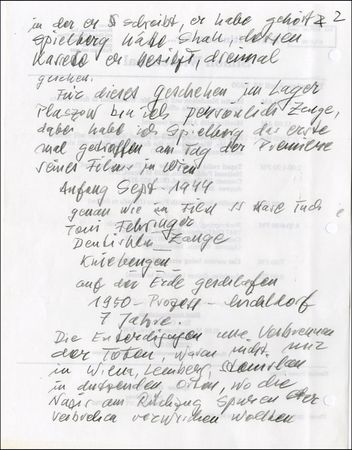 in der er schreibt, er habe gehört 2
Spielberg habe Shah, dessen
Kasette er besitzt, dreimal
gesehen.
Für dieses geschehen im Lager
Plaszow bin ich persönlich Zeuge,
dabei habe ich Spielberg das erste
mal getroffen am Tag der Premiere
seines Films in Wien
Anfang Sept. 1944
genau wie im Film SS
Toni Fehringer
Zange
Kniebeugen
auf der Erde geschlafen
1950 - Prozess -
7 Jahre.
Die und Verbrennen
der Toten, waren nicht nur
in Wien, Lemberg,
in dutzenden Orten, wo die
Nazis am Rückzug Spuren der
Verbrechen verwischen wollten